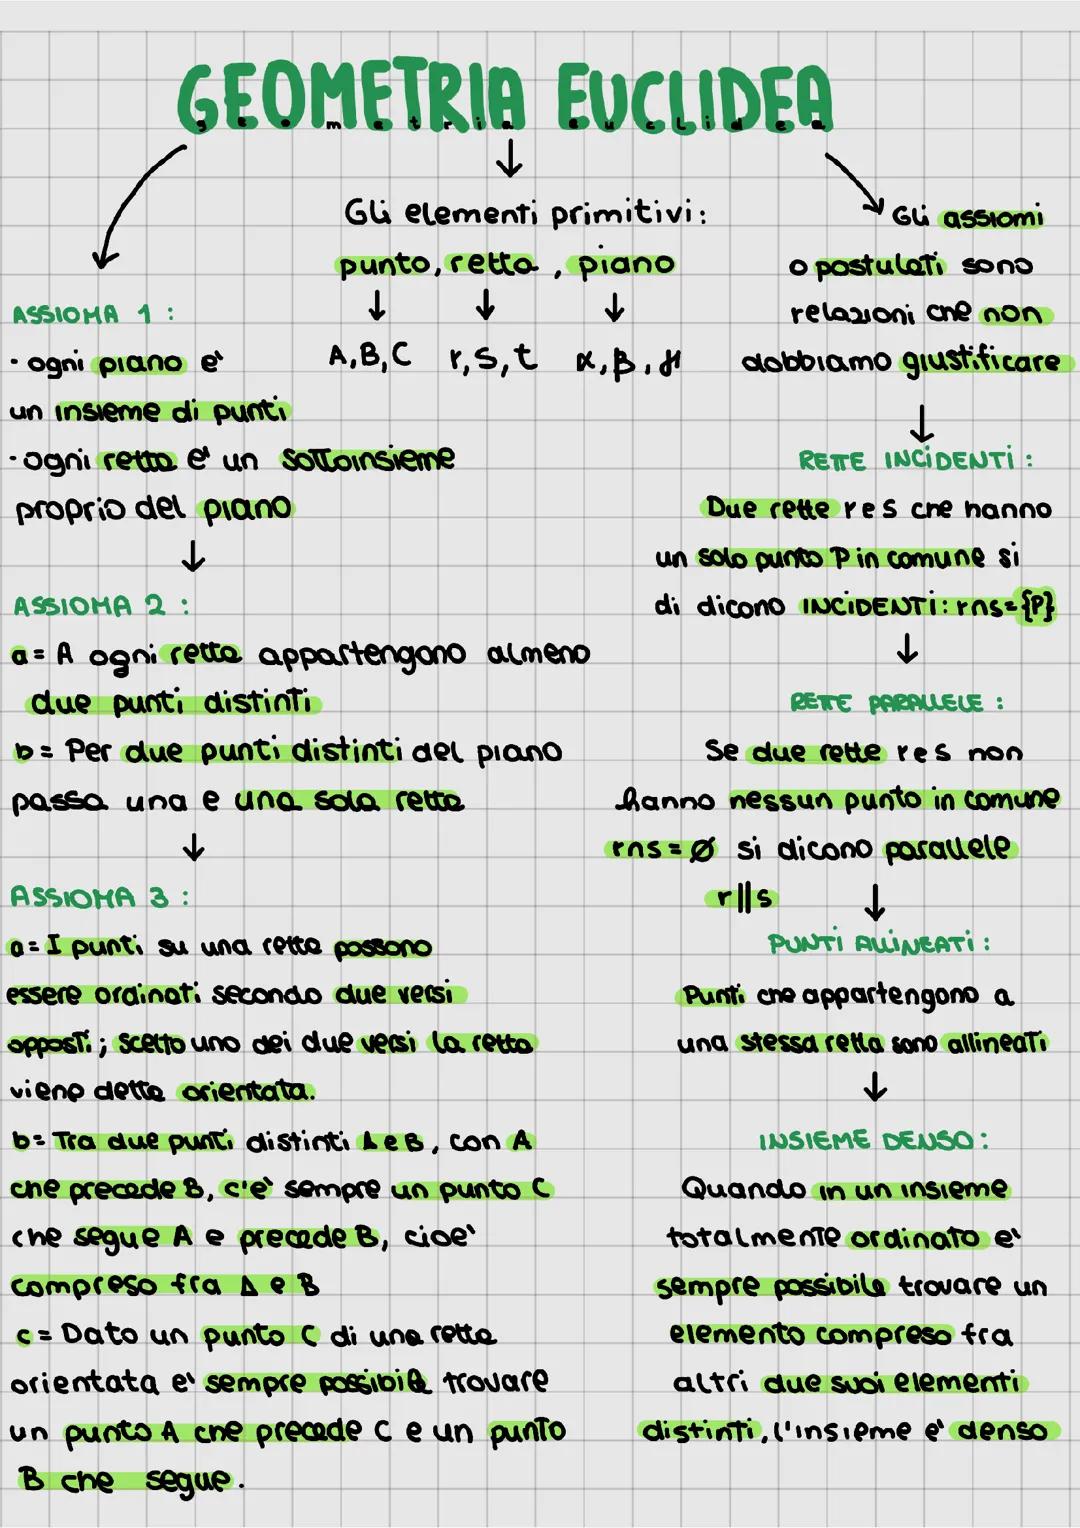 GEOMETRIA EUCLIDEA
geometria euclidea
Gli elementi primitivi:
punto, retta, piano
A,B,C r,s,t α,β,γ
ASSIOMA 1:
· ogni piano e'
un insieme di punti
· ogni retta e' un sottoinsieme
proprio del piano
ASSIOMA 2:
a= A ogni retta appartengono almeno
due punti distinti
b= Per due punti distinti del piano
passa una e una sola retta
ASSIOMA 3:
a= I punti su una retta possono
essere ordinati secondo due versi
opposti; scelto uno dei due versi la retta
viene detta orientata.
b= Tra due punti distinti A e B, con A
che precede B, c'e' sempre un punto C
che segue A e precede B, cioe'
compreso fra A e B
c= Dato un punto C di una retta
orientata e' sempre possibile trovare
un punto A che precede C e un punto
B che segue.
Gli assiomi
o postulati sono
relazioni che non
dobbiamo giustificare
RETTE INCIDENTI:
Due rette r e s che hanno
un solo punto P in comune si
di dicono INCIDENTI: r∩s={P}
RETTE PARALLELE:
Se due rette r e s non
hanno nessun punto in comune
r∩s=Ø si dicono parallele
r||s
PUNTI ALLINEATI:
Punti che appartengono a
una stessa retta sono allineati
INSIEME DENSO:
Quando in un insieme
totalmente ordinato e'
sempre possibile trovare un
elemento compreso fra
altri due suoi elementi
distinti, l'insieme e' denso